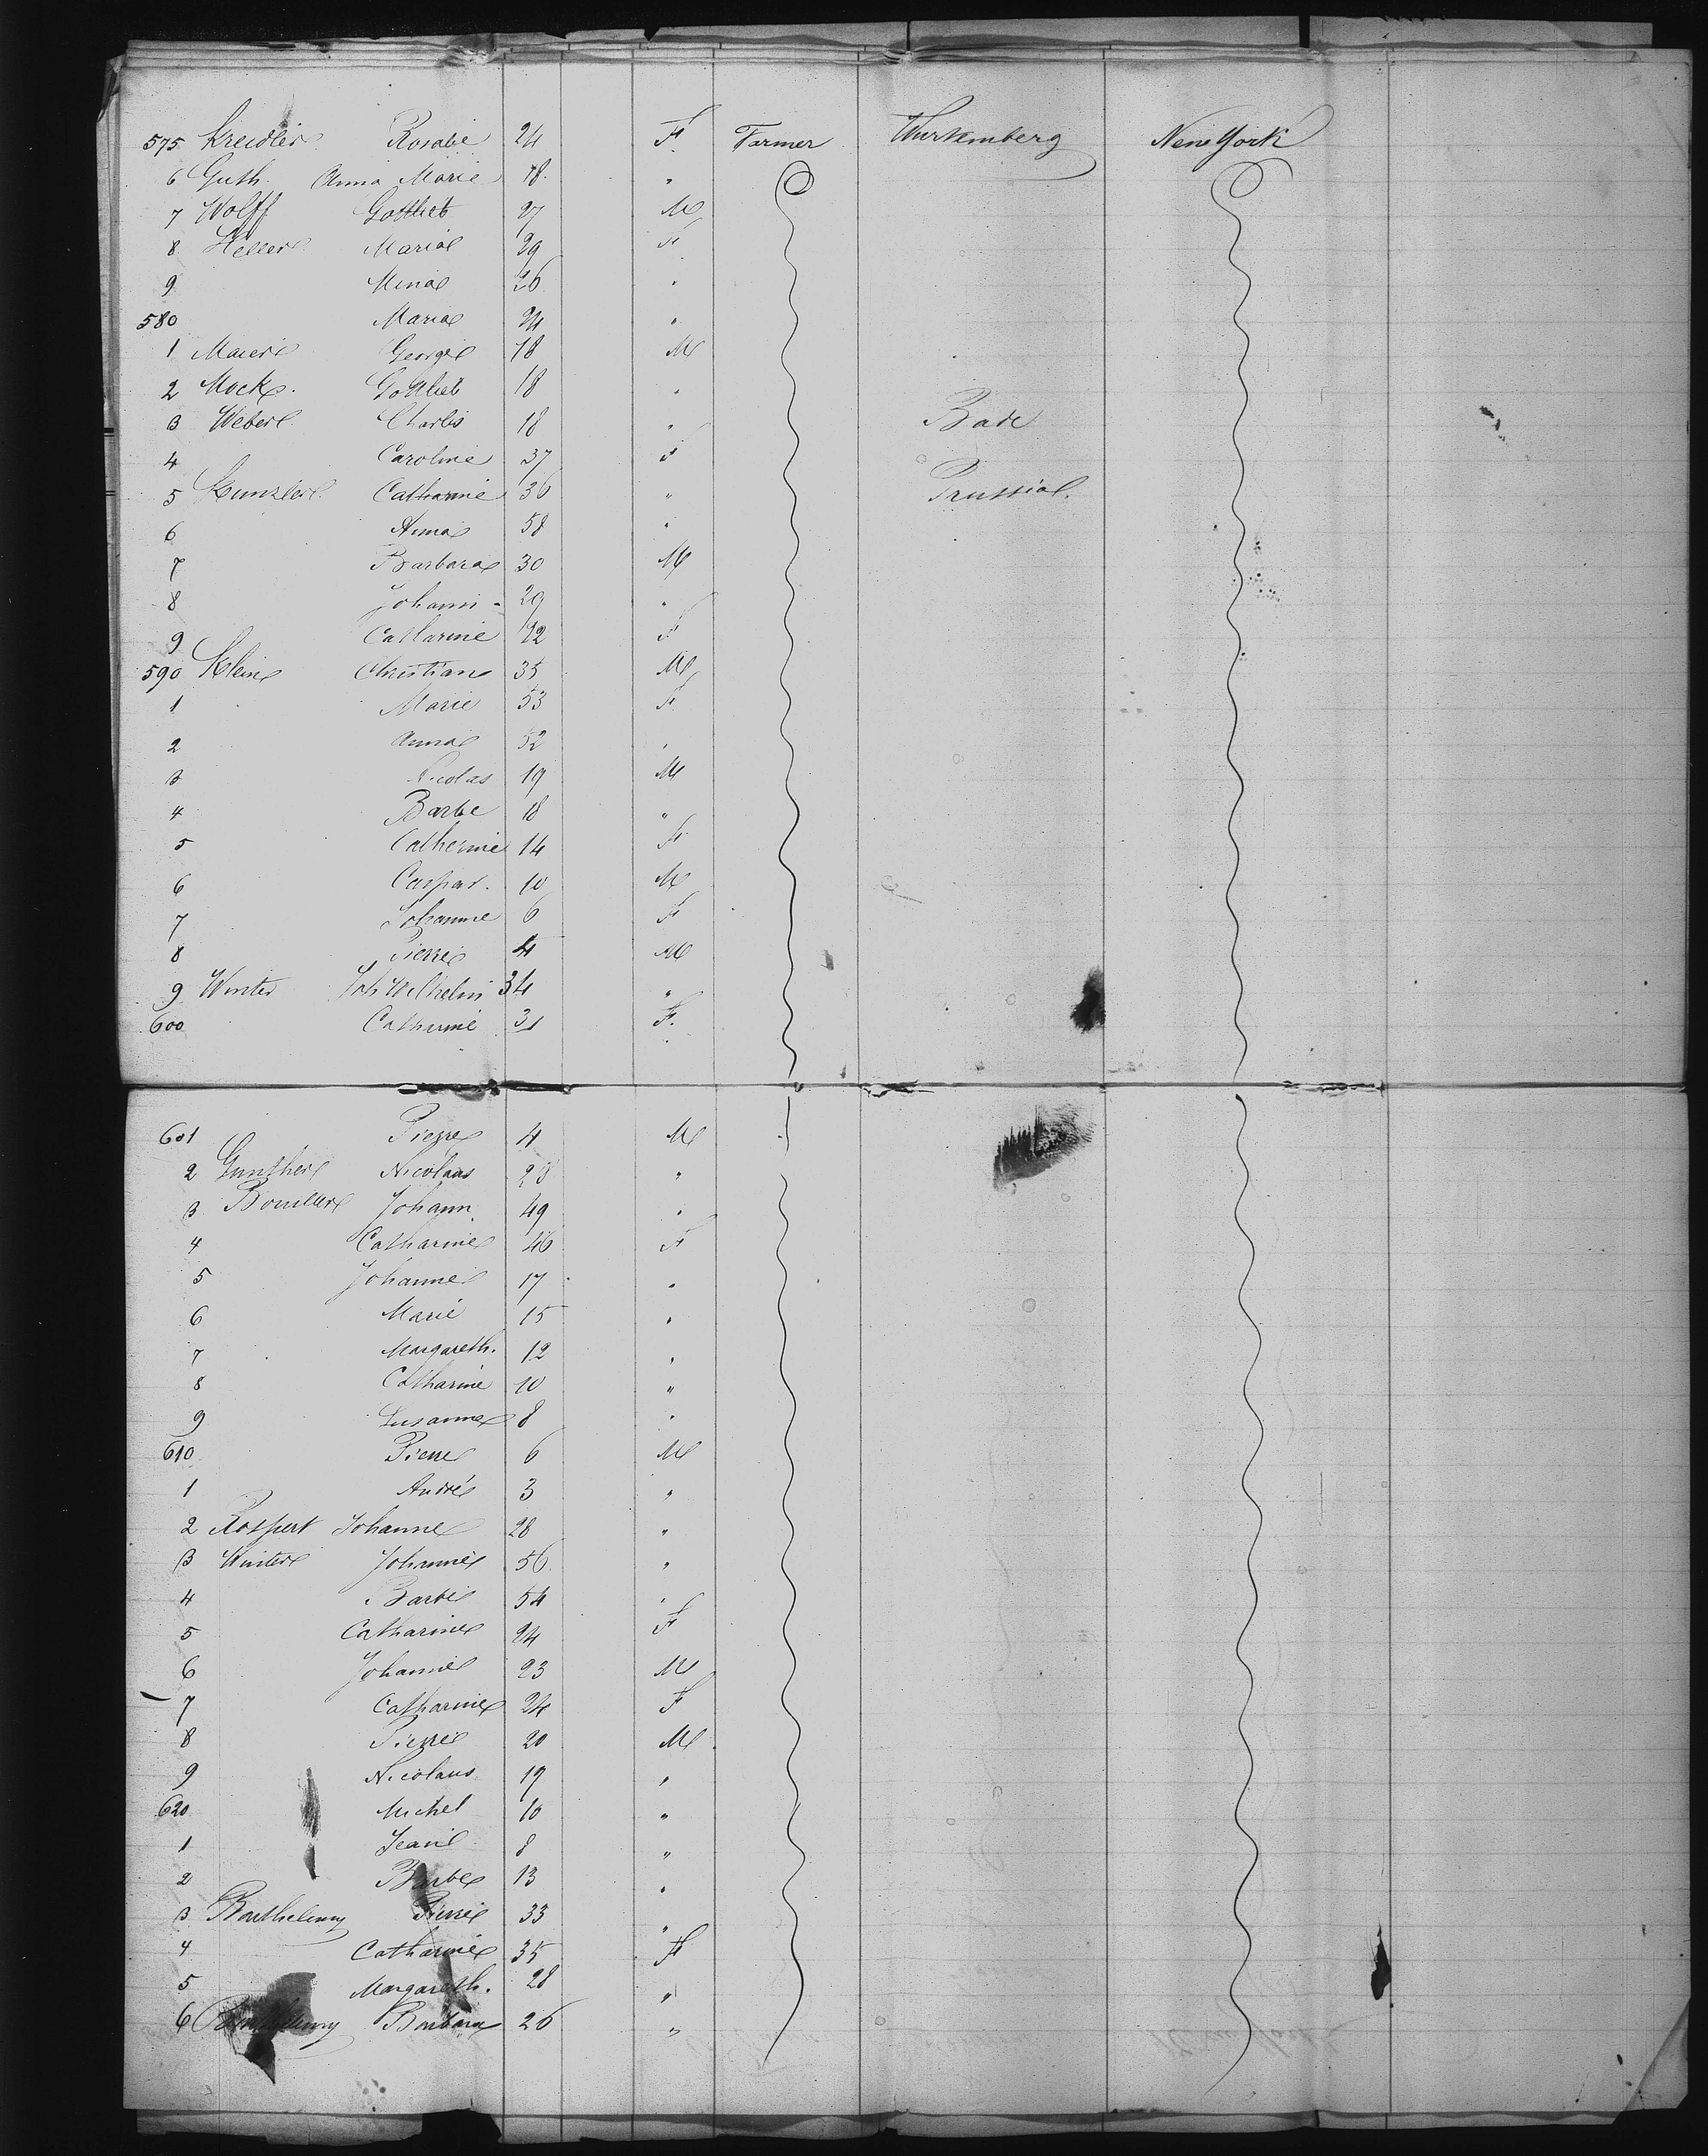 575 Kreidler Rosalie 24 F Farmer Wurtemberg New York
6 Guth Anna Marie 18 "
7 Wolff Gottlieb 27 M
8 Heller Maria 29 F
9 Mina 26 "
580 Maria 24 "
1 Maier George 18 M
2 Mock Gottlieb 18 "
3 Weber Charles 18 " Bade
4 Caroline 37 F
5 Kunzler Catharine 36 " Prussia
6 Anna 58 "
7 Barbara 30 M
8 Johann 29 "
9 Catharine 12 F
590 Klein Christian 35 M
1 Marie 53 F
2 Anna 52 "
3 Nicolas 19 M
4 Barbe 18 "
5 Catherine 14 F
6 Caspar. 10 M
7 Johanne 6 F
8 Pierre 4 M
9 Winter Joh Wilhelm 34 "
600 Catharine 31 F.
601 Pierre 4 M
2 Gunther Nicolaus 28 "
3 Johann 49 "
4 Catharine 46 F
5 Johanne 17 "
6 Marie 15 "
7 Margareth. 12 "
8 Catharine 10 "
9 Susanne 8 "
610 Pierre 6 M
1 André 3 "
2 Rospert Johanne 28 "
3 Winter Johannes 56 "
4 Barbe 54 "
5 Catharine 24 F
6 Johanne 23 M
7 Catharine 24 F
8 Pierre 20 M
9 Nicolaus 19 "
620 Michel 10 "
1 Jean 8 "
2 Barbe 13 "
3 Barthelemy Pierre 33 "
4 Catharine 35 F
5 Margareth. 28 "
6 Barthelemy Barbara 26 "